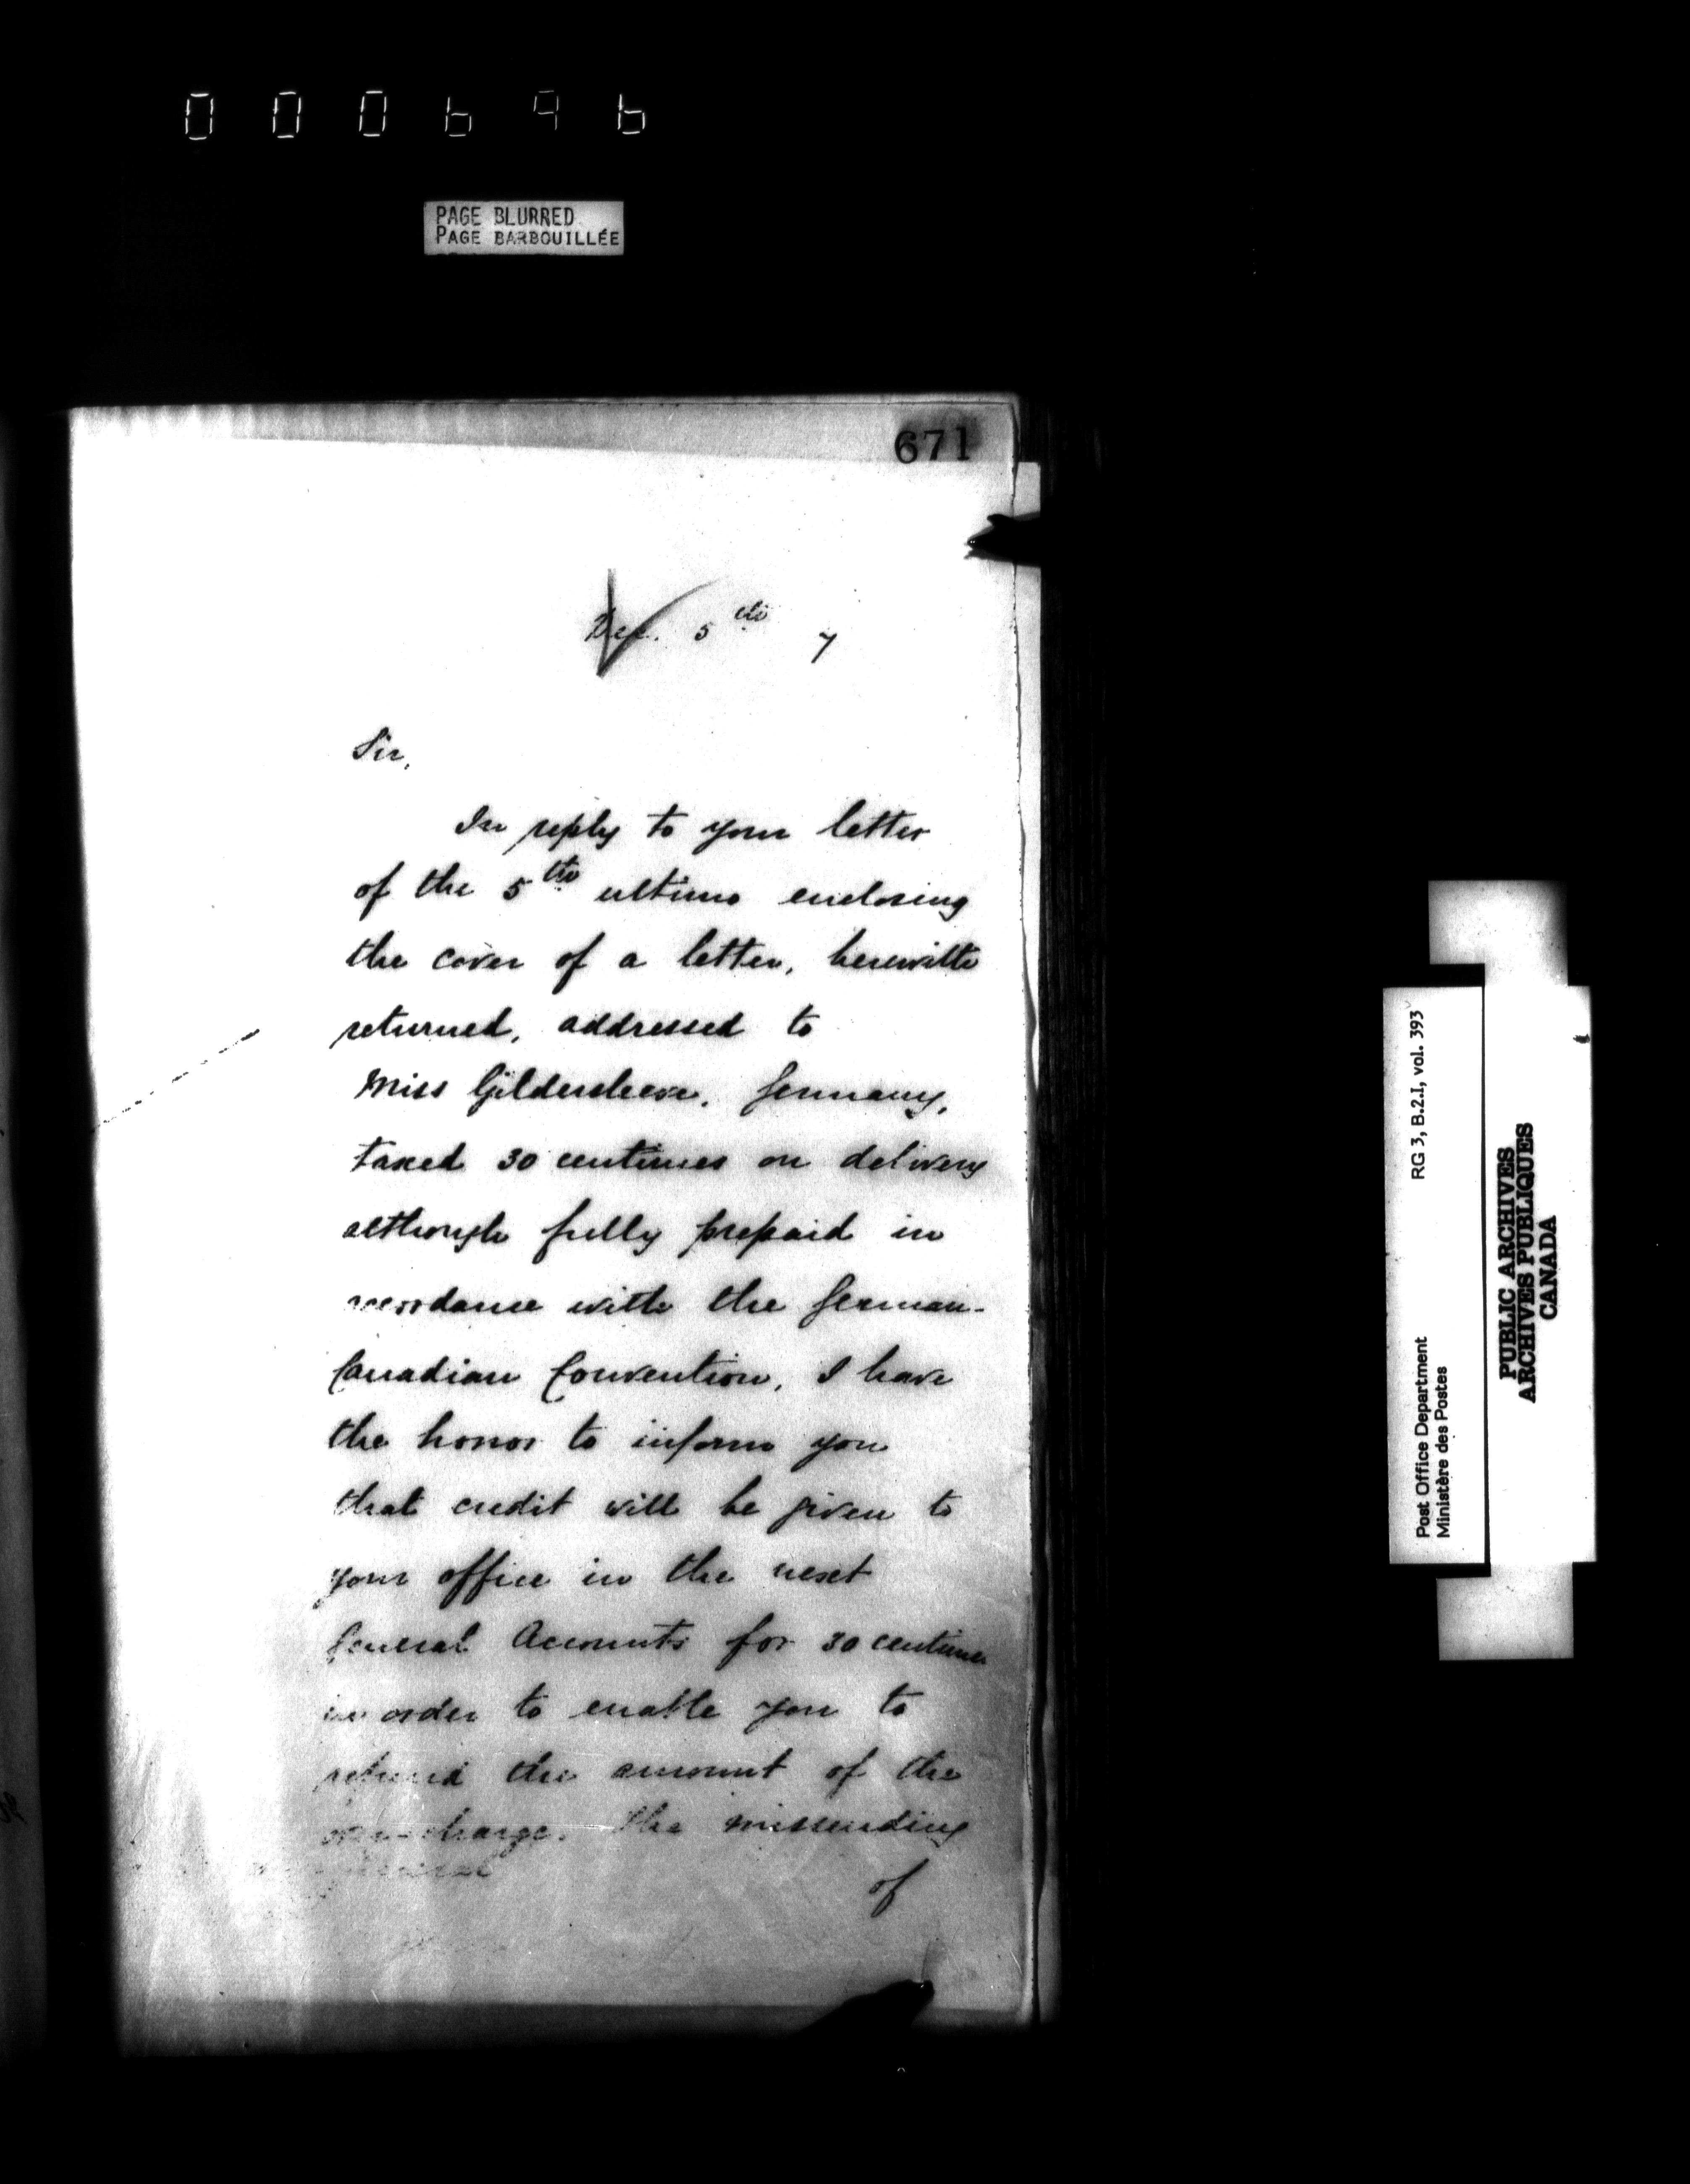 000696
PAGE BLURRED
PAGE BARBOUILLÉE
671
Dec. 5th 7
Sir,
In reply to your letter
of the 5th ultimo enclosing
the cover of a letter, herewith
returned, addressed to
Miss Gildersleeve, Germany,
taxed 30 centimes on delivery
although fully prepaid in
accordance with the German-
Canadian Convention, I have
the honor to inform you
that credit will be given to
your office in the next
General Accounts for 30 centimes
in order to enable you to
refund the amount of the
over-charge. The missending
of
RG 3, B.2.I, vol. 393
Post Office Department
Ministère des Postes
PUBLIC ARCHIVES
ARCHIVES PUBLIQUES
CANADA